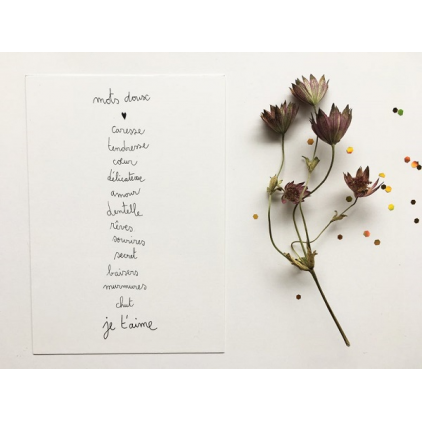 mots doux
caresse
tendresse
cœur
délicatesse
amour
dentelle
rêves
sourires
secret
baisers
murmures
chut
je t'aime